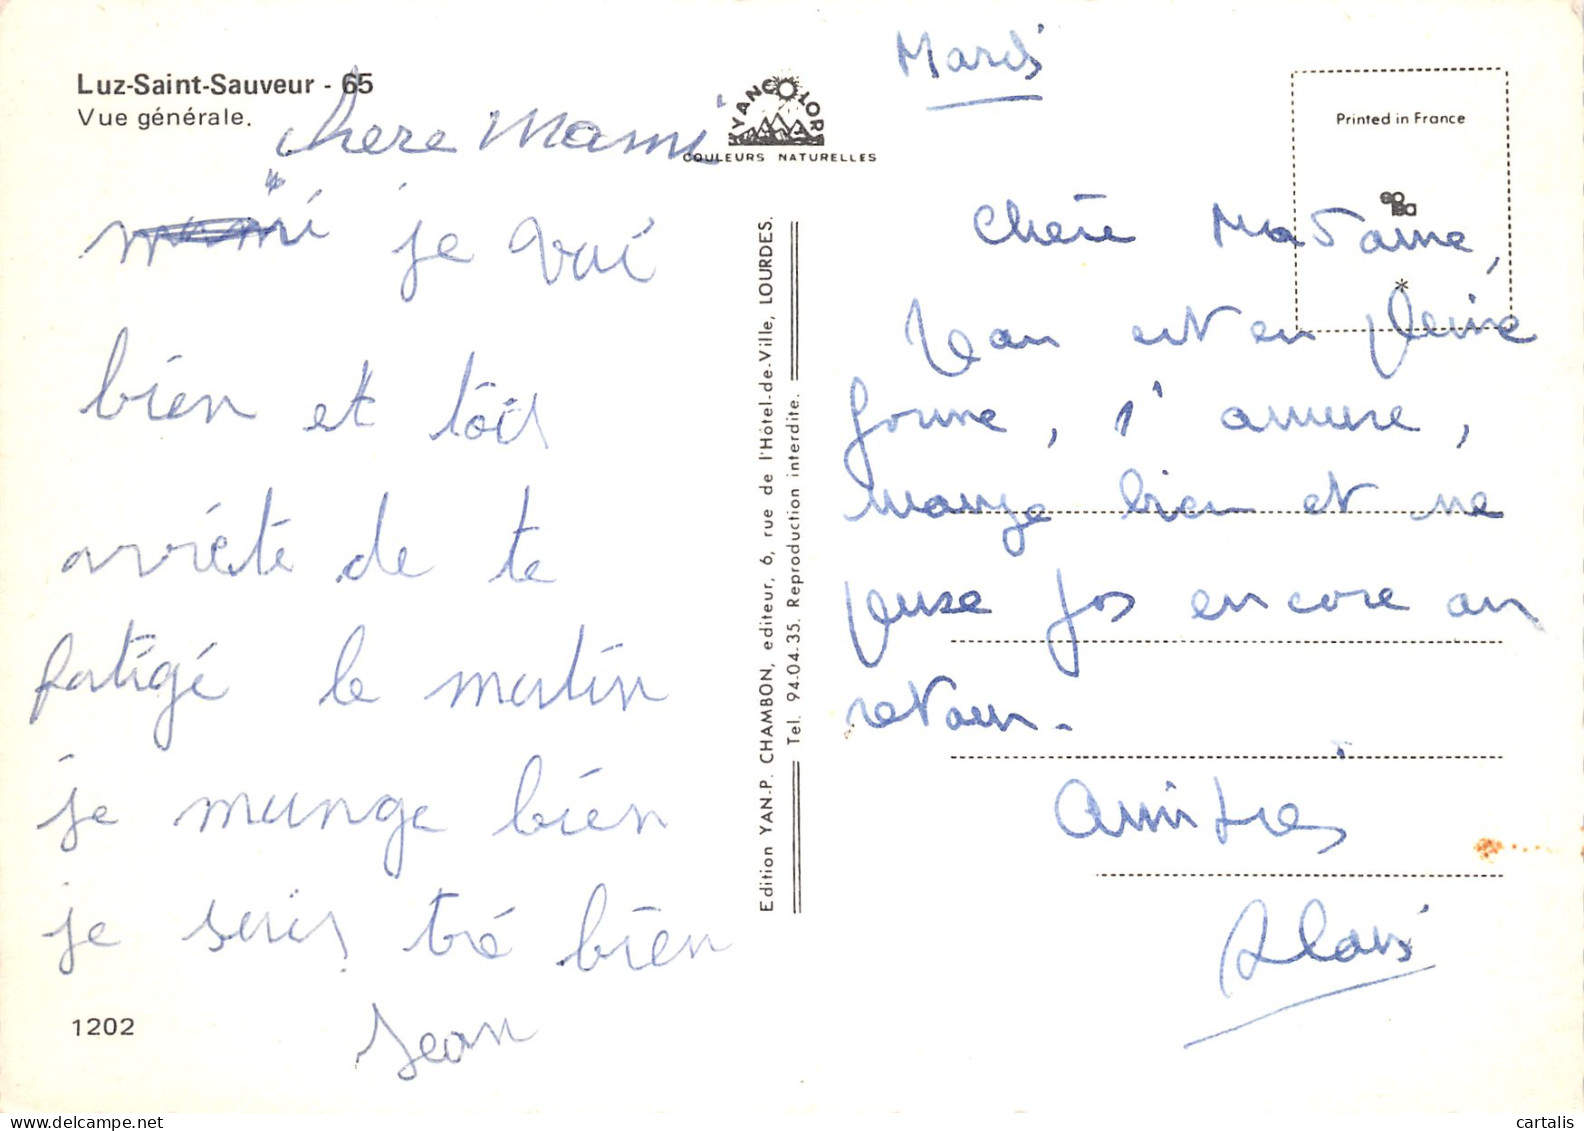 Luz-Saint-Sauveur - 65
Vue générale.
chere Mami
je vai
bien et tois
arrété de te
fatigé le matin
je mange bien
je suis tré bien
Jean
1202
YANCOLOR
COULEURS NATURELLES
Edition YAN-P. CHAMBON, editeur, 6, rue de l'Hôtel-de-Ville, LOURDES.
Tel. 94.04.35. Reproduction interdite.
Mardi
Printed in France
*
Chère Madame,
Jean est en pleine
forme, s'amuse,
mange bien et ne
pense pas encore au
retour.
Amitiés
Alain
cartalis